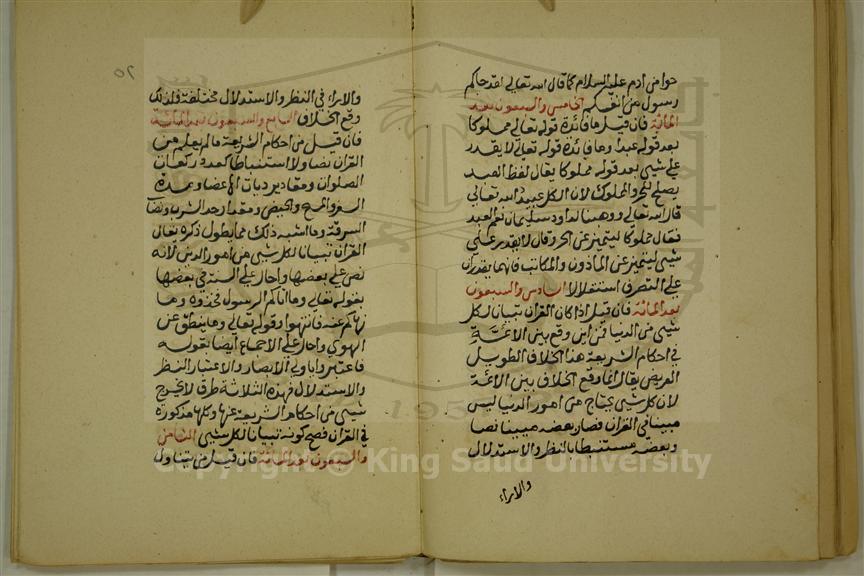 حوا من ادم عليه السلام كما قال الله تعالى لقد جاكم
رسول من انفسكم الخامس والسبعون بعد
المائة فان قيل ما فائدة قوله تعالى مملوكا
بعد قوله عبدا وما فائدة قوله تعالى لا يقدر
على شيى بعد قوله مملوكا يقال لفظ العبد
يصلح للحر والمملوك لان الكل عبيد الله تعالى
قال الله تعالى ووهبنا لداود سليمان نعم العبد
فقال مملوكا ليتميز عن الحر وقال لا يقدر على
شيى ليتميز عن المأذون والمكاتب فانهما يقدران
على التصرف استقلالا السادس والسبعون
بعد المائة فان قيل اذا كان القران تبيانا لكل
شيى من الدنيا فمن اين وقع بين الائمة
في احكام الشريعة هذا الخلاف الطويل
العريض يقال انما وقع الخلاف بين الائمة
لان كل شيى يحتاج من امور الدنيا ليس
مبينا في القران فصار بعضه مبينا نصا
وبعضه مستنبطا بالنظر والاستدلال
والاراء
٥٦
والاراء في النظر والاستدلال مختلفة فلذلك
وقع الخلاف السابع والسبعون بعد المائة
فان قيل من احكام الشريعة ما لم يعلم من
القران نصا ولا استنباطا كعدد ركعات
الصلوات ومقادير ديات الاعضا ومدة
السفر والمسح والحيض ومقدار حد الشرب ونصاب
السرقة وما اشبه ذلك مما يطول ذكره يقال
القران تبيانا لكل شيى من امور الدين لانه
نص على بعضها واحال على السنة في بعضها
بقوله تعالى وما اتاكم الرسول فخذوه وما
نهاكم عنه فانتهوا وقوله تعالى وما ينطق عن
الهوى واحال على الاجماع ايضا بقوله
فاعتبروا يا اولي الابصار والاعتبار النظر
والاستدلال فهذه الثلاثة طرق لا يخرج
شيى من احكام الشريعة عنها وكلها مذكورة
في القران فصح كونه تبيانا لكل شيى الثامن
والسبعون بعد المائة فان قيل من يتناول
© King Saud University
195